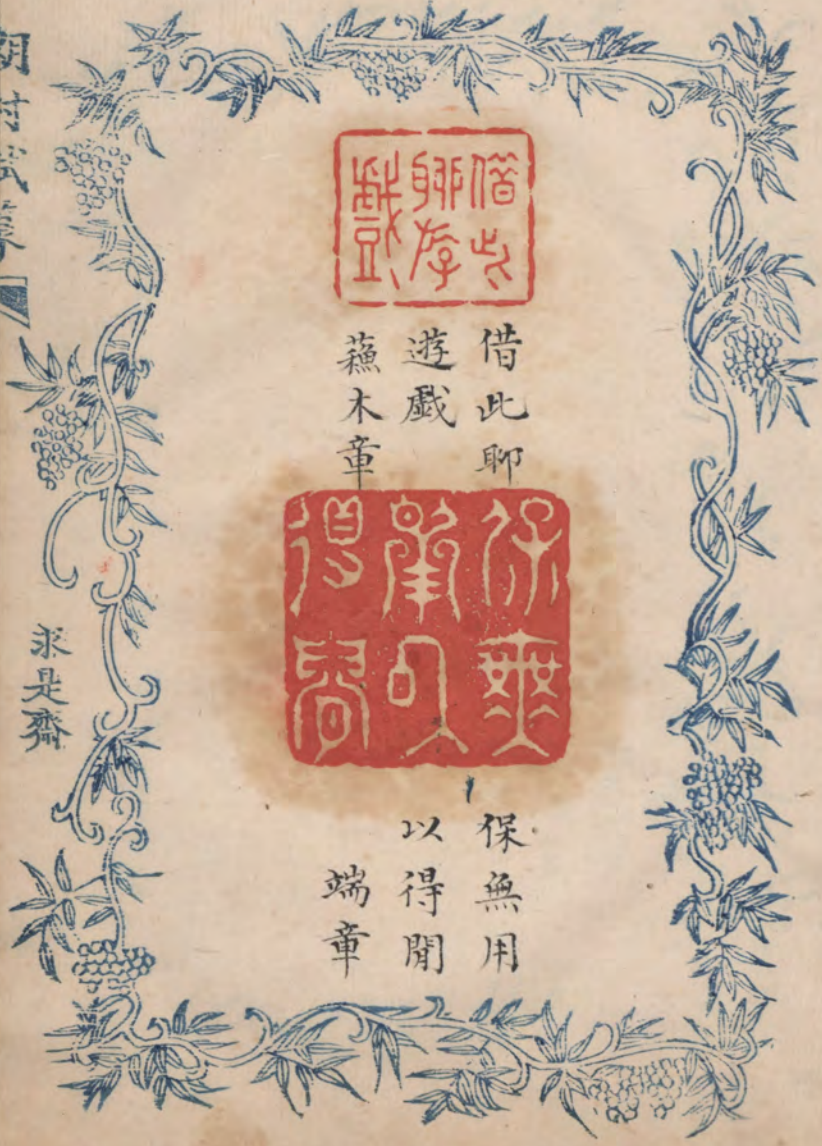 借此
聊游
戲
借此聊
遊戲
蘓木章
保無
以
得
保無用
以得閒
端章
求是齋